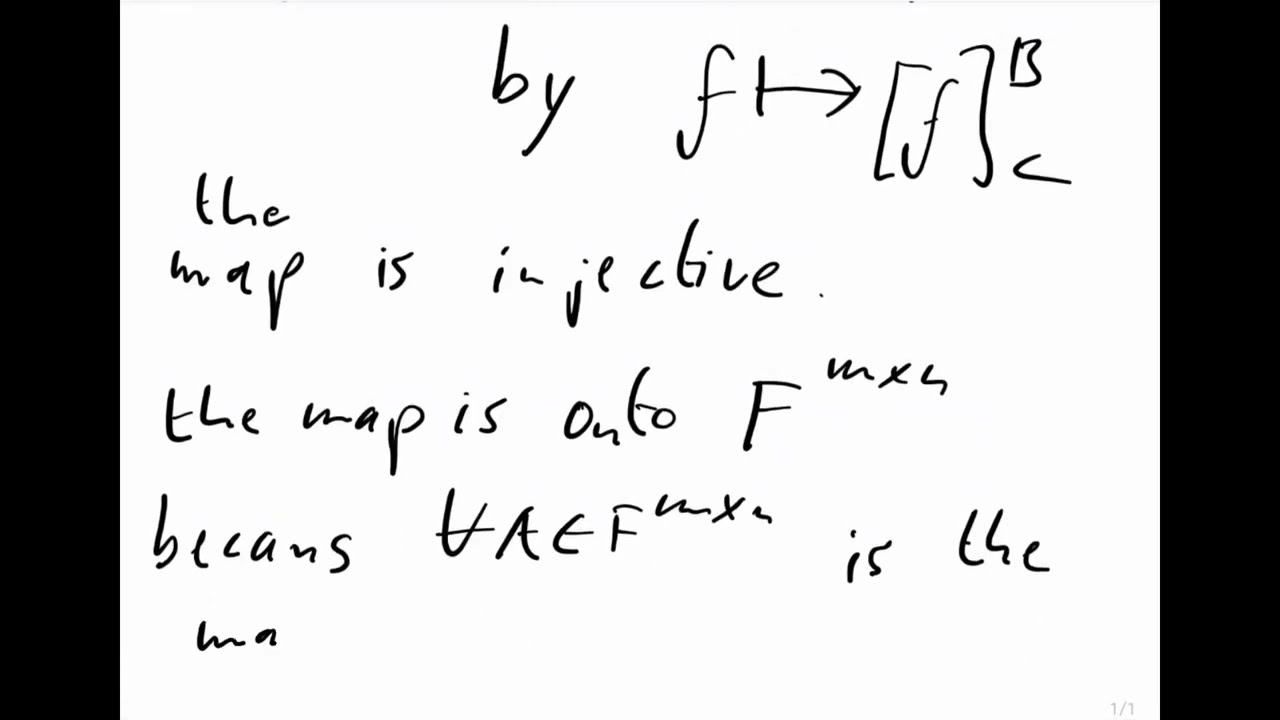 by f ↦ [f]^B_C
the
map is injective.
the map is onto F^{m×n}
becaus ∀A∈F^{m×n} is the
ma
1/1